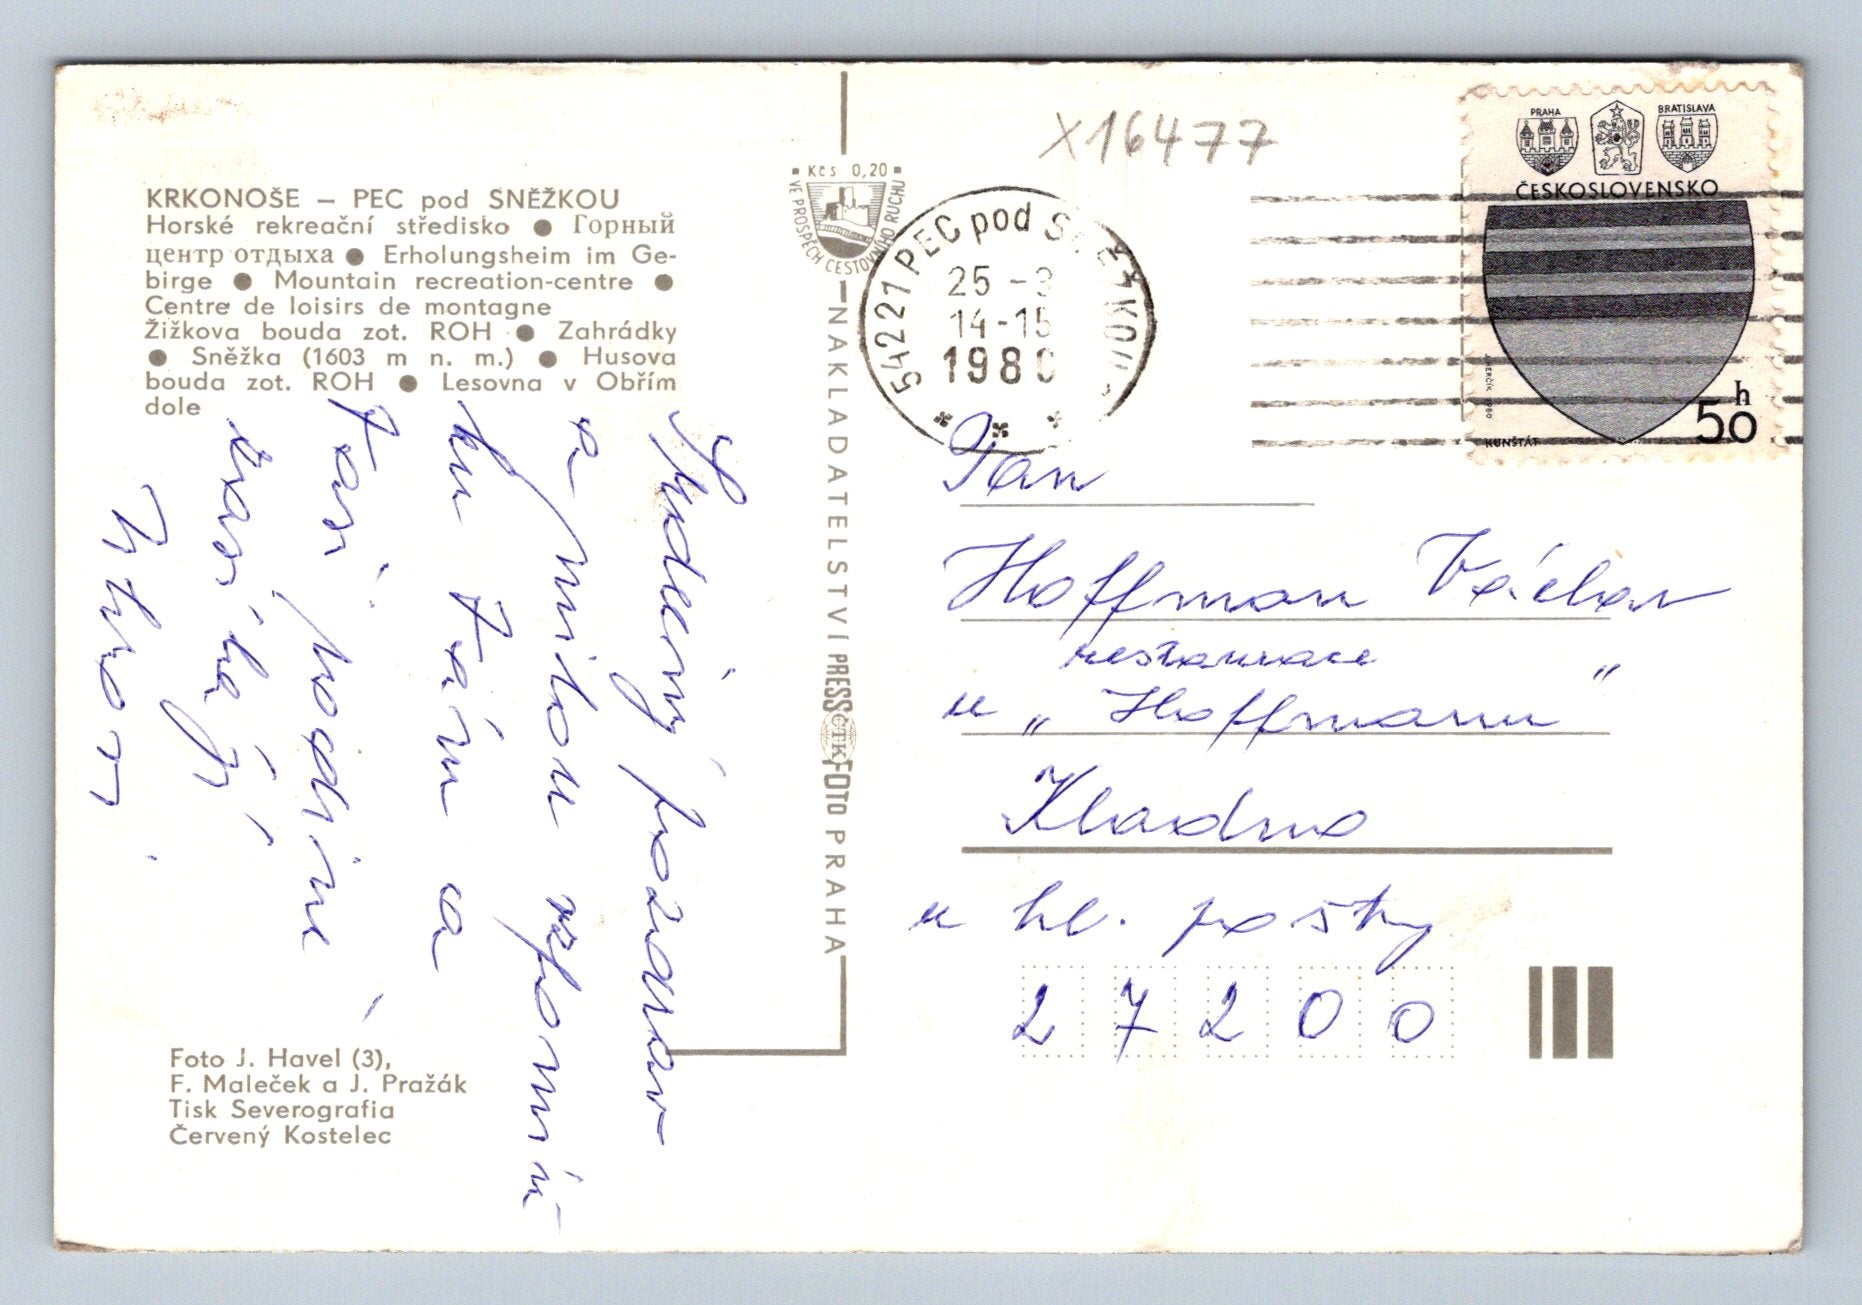 x16477
KRKONOŠE – PEC pod SNĚŽKOU
Horské rekreační středisko ● Горный
центр отдыха ● Erholungsheim im Ge-
birge ● Mountain recreation-centre ●
Centre de loisirs de montagne
Žižkova bouda zot. ROH ● Zahrádky
● Sněžka (1603 m n. m.) ● Husova
bouda zot. ROH ● Lesovna v Obřím
dole
Srdečný pozdrav
a milou vzpomín
ku Vám a
Vaší rodině
Foto J. Havel (3),
F. Maleček a J. Pražák
Tisk Severografia
Červený Kostelec
Kčs 0,20
VE PROSPĚCH CESTOVNÍHO RUCHU
NAKLADATELSTVÍ PRESSFOTO PRAHA
ČTK
54227 PEC pod SNĚŽKOU
25 -3
14-15
1980
PRAHA
BRATISLAVA
ČESKOSLOVENSKO
50 h
KUNŠTÁT
Pan
Hoffman Václav
restaurace
u „Hoffmanu"
Kladno
u hl. pošty
27200